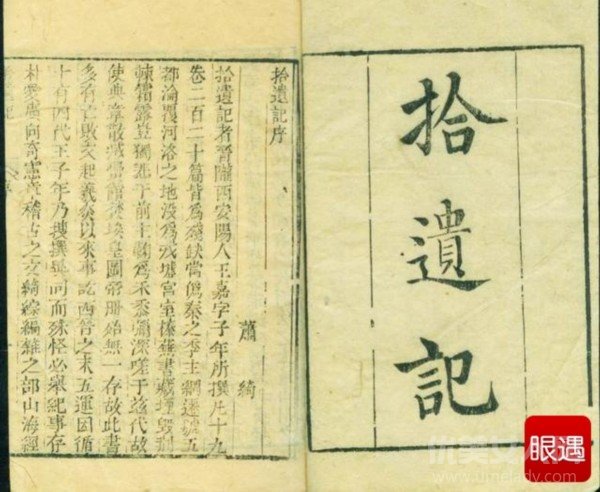 拾遺記
拾遺記序
蕭綺
拾遺記者晉隴西安陽人王嘉字子年所撰凡十九
卷二百二十篇皆爲殘缺當僞秦之季王綱遷號五
都淪覆河洛之地没爲戎墟宮室榛蕪書藏堙毀荆
棘霜露豈獨悲于前王鞠爲禾黍彌深嗟于兹代故
使典章散滅黌館焚埃皇圖帝冊殆無一存故此書
多有亡散文起羲炎以來事訖西晉之末五運因循
十有四代王子年乃搜撰異同而殊怪必舉紀事存
朴愛廣尚奇憲章稽古之文綺綜編雜之部山海經
眼遇
www.umelady.com